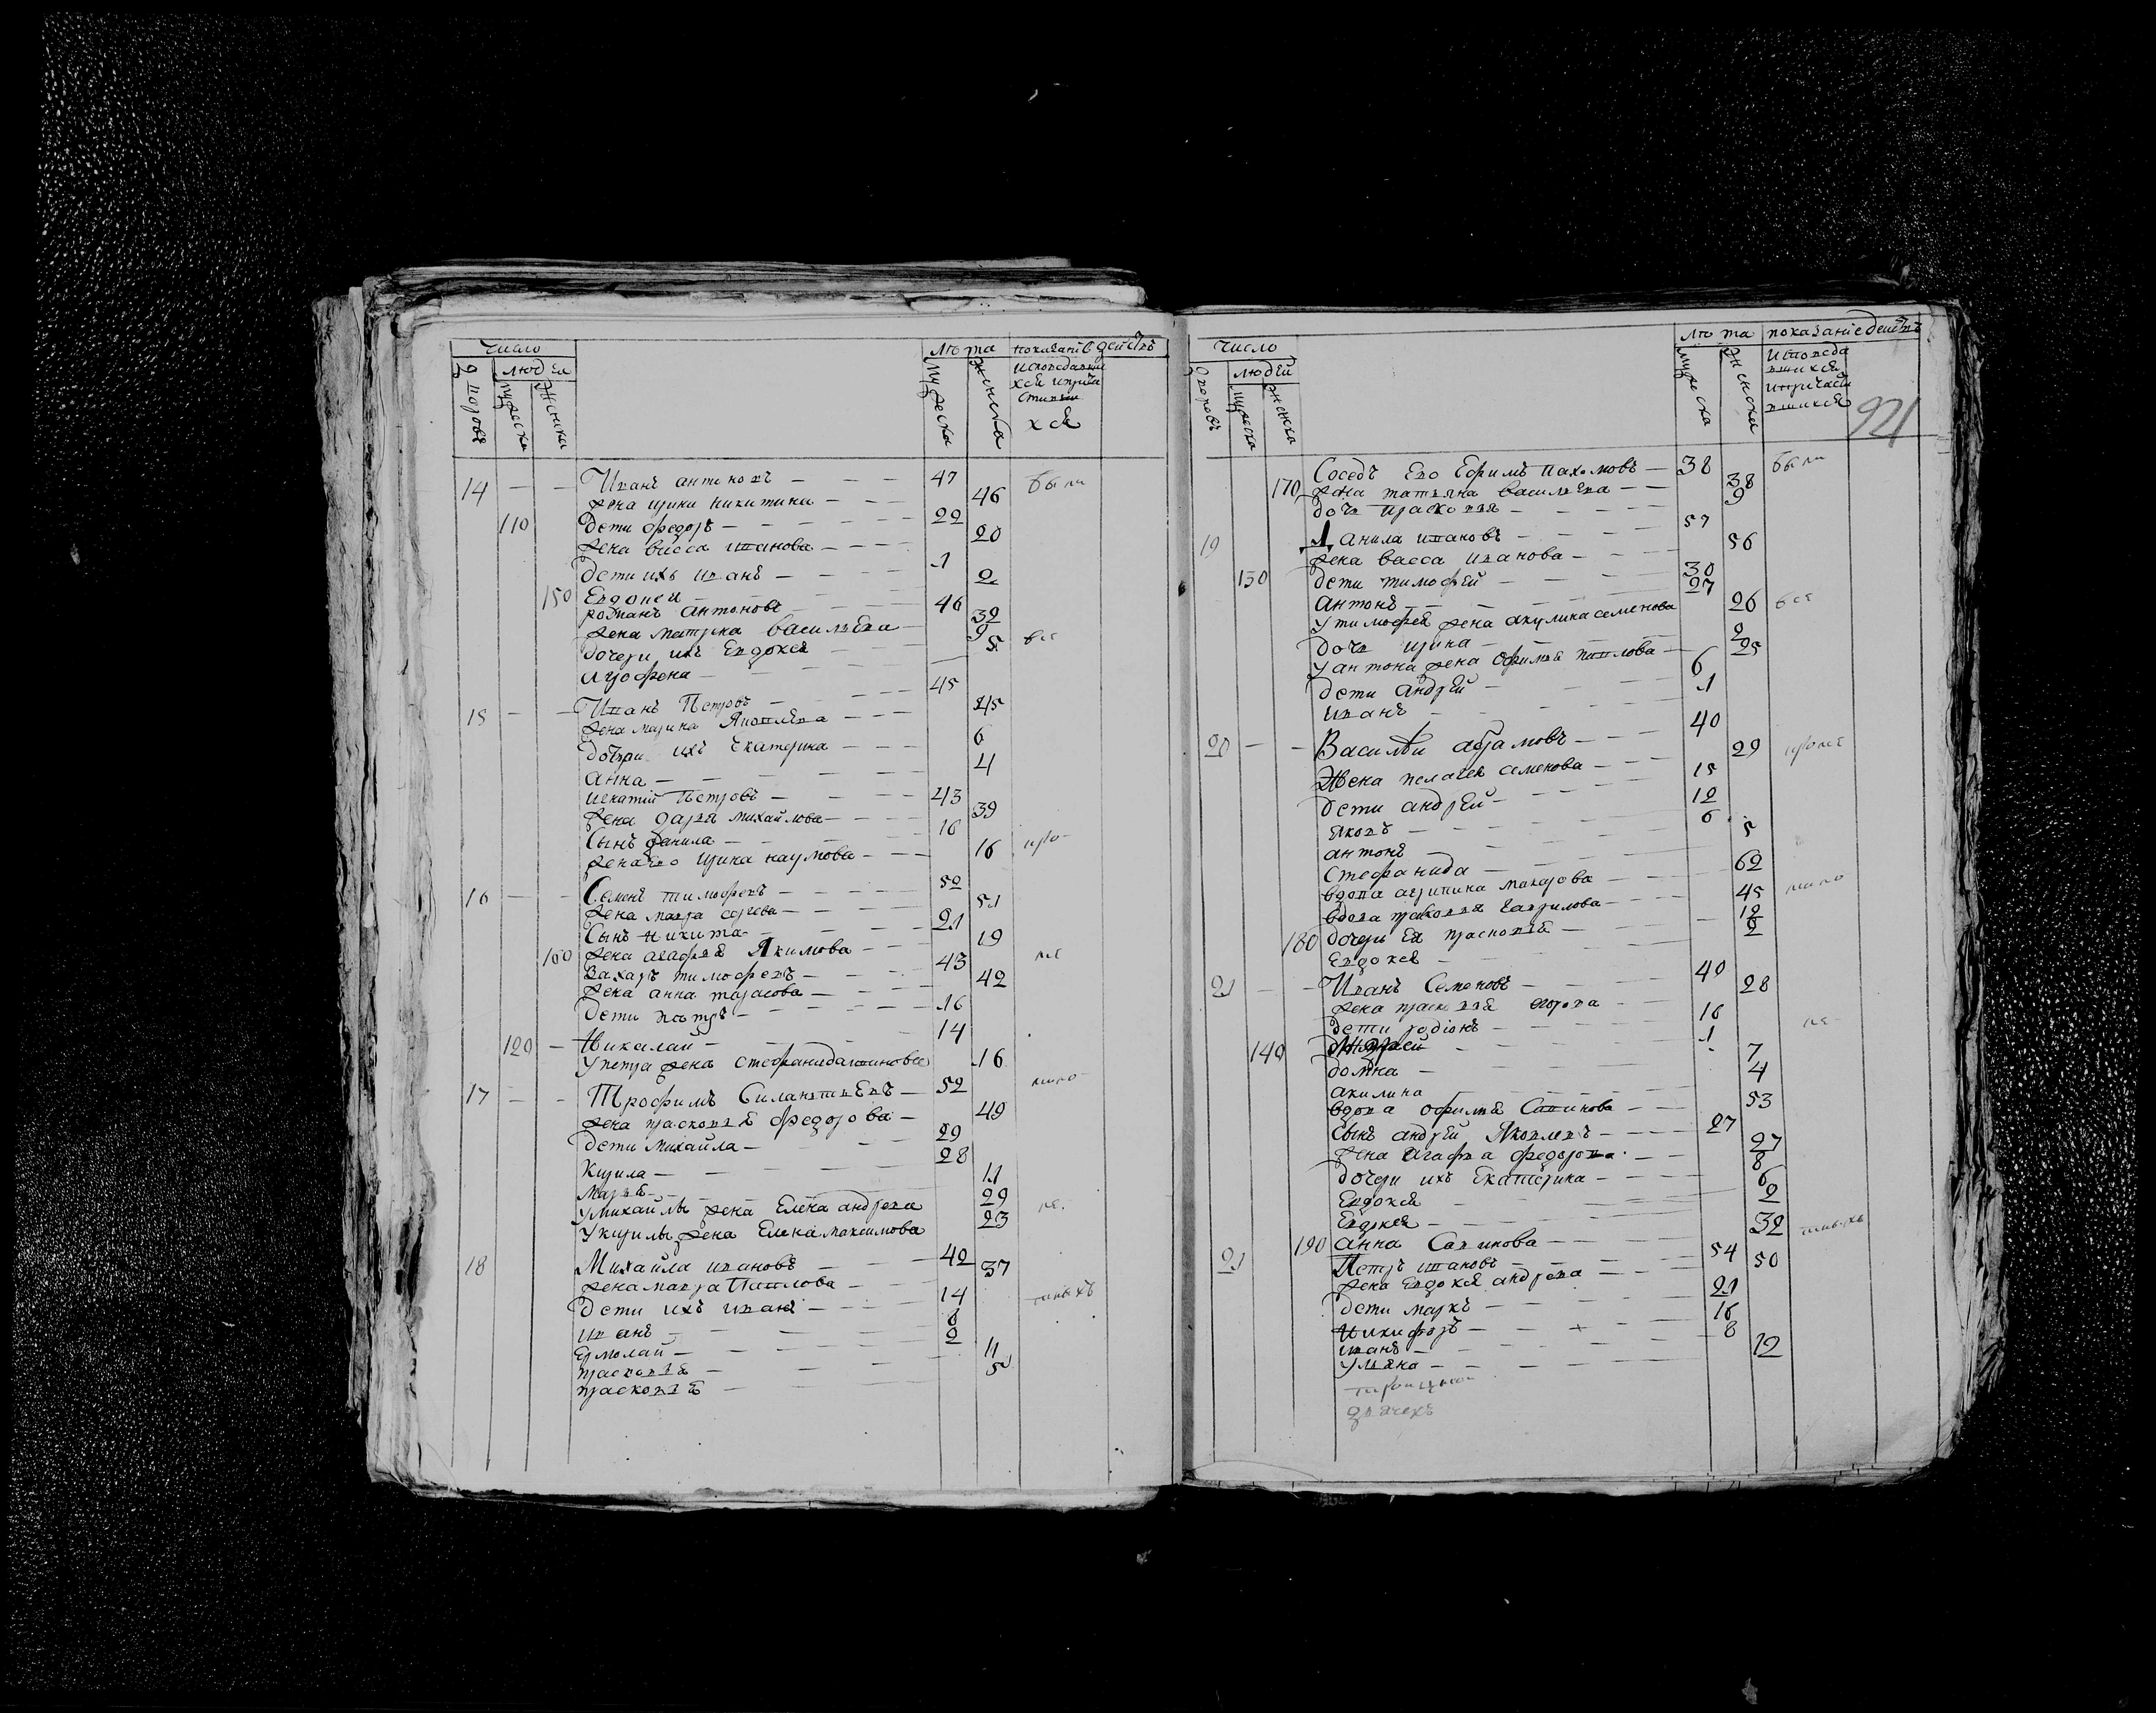 число
людей
лета
мужеска
женска
исповедавши
хся и прича
стивши
хся
14 Иванъ антиповъ 47 были
жена ирина никитина 46
110 дети федоръ 22
жена васса иванова 20
дети ихъ иванъ 1
150 Евдокея 2
романъ антиповъ 46
жена матрена васильева 32
дочери ихъ Евдокея 9 все
Аграфена 5
15 Иванъ Петровъ 45
жена марина Яковлева 45
дочери ихъ Екатерина 6
Анна 4
игнатий Петровъ 43
жена дарья михайлова 39
Сынъ данила 16
жена ево ирина наумова 16
16 Семенъ тимофеевъ 52
жена мавра 51
Сынъ никита 21
160 жена агафья Якимова 19
Захаръ тимофеевъ 43
жена анна тарасова 42
дети петръ 16
120 николай 14
у петра жена стефанида 16
17 Трофимъ Силантьевъ 52
жена прасковья федорова 49
дети михайла 29
Кирила 28
Марья 11
у михайлы жена Елена андреева 29
у кирилы жена Елена максимова 23
18 Михайла ивановъ 42
жена мавра Павлова 37
дети ихъ иванъ 14
иванъ 8
Ермолай 2
прасковья 11
прасковья 5
число
людей
лета
показание действъ
мужеска
женска
исповеда
вшихся
и причасти
вшихся
921
Соседъ Ево Ефимъ Пахомовъ 38 были
170 жена татьяна васильева 38
дочь прасковья 9
19 Данила ивановъ 57
жена васса иванова 56
130 дети тимофей 30
антонъ 27
у тимофея жена акулина семенова 26 все
дочь ирина 2
у антона жена офимья павлова 25
дети андрей 6
иванъ 1
20 Василей абрамовъ 40
Жена пелагея семенова 29
дети андрей 15
яковъ 12
антонъ 6
стефанида 5
вдова агрипина макарова 62
вдова прасковья гаврилова 45
180 дочери Ея прасковья 12
Евдокея 2
21 Иванъ Семеновъ 40
жена прасковья 28
дети родионъ 16
140 андрей 1
домна 7
акилина 4
вдова офимья Савинова 53
сынъ андрей Яковлевъ 27
жена агафья федорова 27
дочери ихъ Екатерина 8
Евдокея 6
Евдокея 2
190 анна Савинова 32
21 Петръ ивановъ 54
жена Евдокея андреева 50
дети маркъ 21
никифоръ 16
иванъ 8
ульяна 12